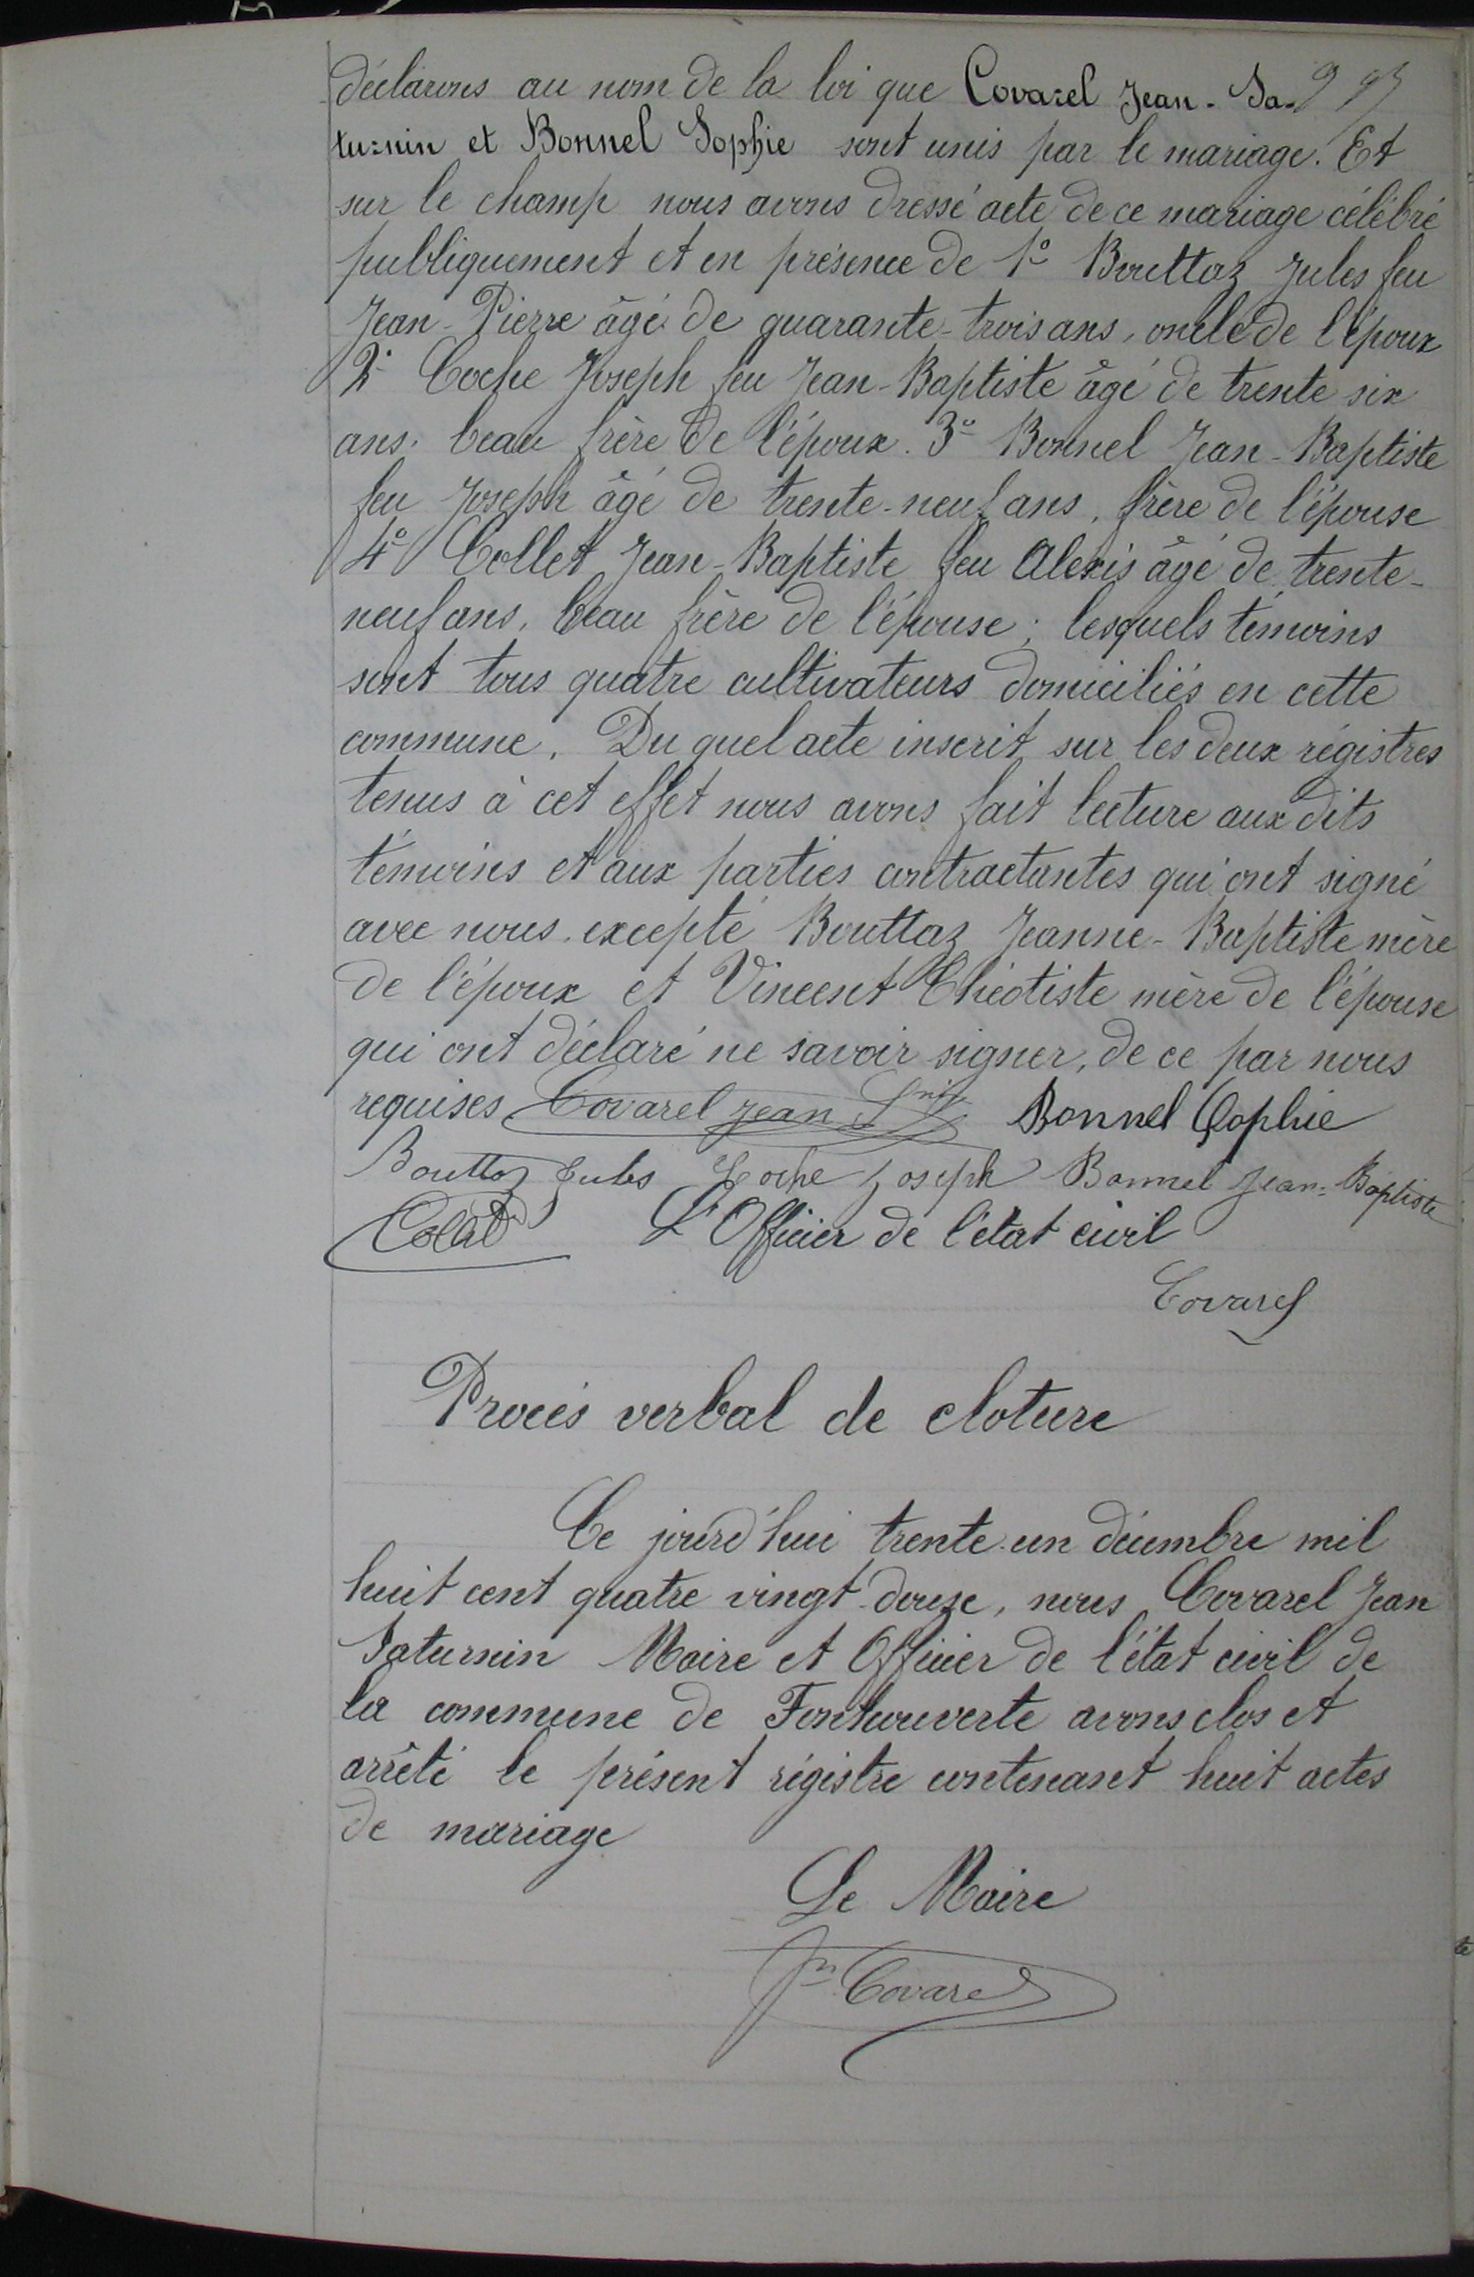 déclarons au nom de la loi que Covarel Jean-Sa-
turnin et Bonnel Sophie sont unis par le mariage. Et
sur le champ nous avons dressé acte de ce mariage célébré
publiquement et en présence de 1º Bouttaz Jules feu
Jean-Pierre âgé de quarante-trois ans, oncle de l'époux
2º Coche Joseph feu Jean-Baptiste âgé de trente six
ans. beau frère de l'époux. 3º Bonnel Jean-Baptiste
feu Joseph âgé de trente-neuf ans, frère de l'épouse
4º Collet Jean-Baptiste feu Alexis âgé de trente-
neuf ans, beau frère de l'épouse; lesquels témoins
sont tous quatre cultivateurs domiciliés en cette
commune. Du quel acte inscrit sur les deux régistres
tenus à cet effet nous avons fait lecture aux dits
témoins et aux parties contractantes qui ont signé
avec nous. excepté Bouttaz Jeanne-Baptiste mère
de l'époux et Vincent Théotiste mère de l'épouse
qui ont déclaré ne savoir signer, de ce par nous
requises Covarel Jean Bonnel Sophie
Bouttaz Jules Coche Joseph Bonnel Jean-Baptiste
L'Officier de l'état civil
Covarel
Procés verbal de cloture
Ce jourd'hui trente-un décembre mil
huit cent quatre vingt-douze, nous Covarel Jean
Saturnin Maire et Officier de l'état civil de
la commune de Fontcouverte avons clos et
arrêté le présent régistre contenant huit actes
de mariage
Le Maire
Jn Covarel